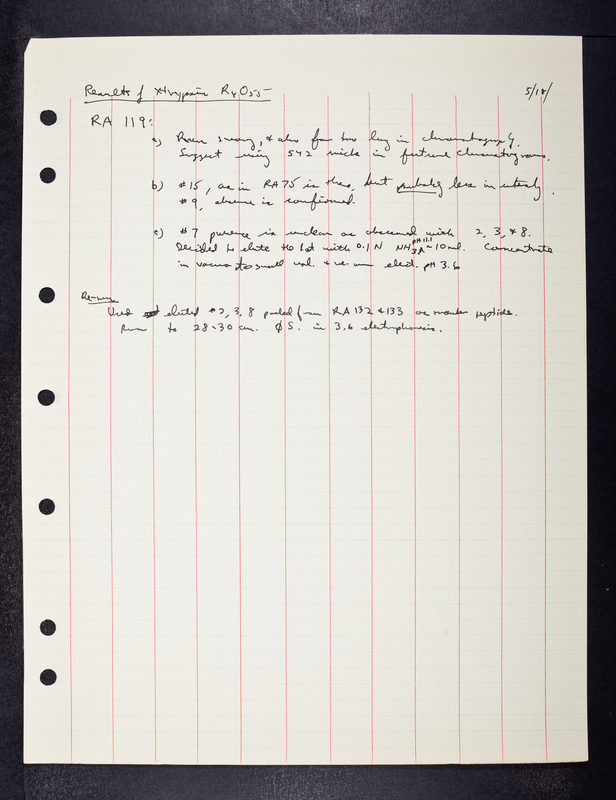 Results of xtrypsin Rx O55
5/18/
RA 119:
a) Poren swang, & also far too long in chromatography.
Suggest using 542 wicks in future chromatograms.
b) #15, as in RA 75 is there, but probably less intensity.
#9, absence is confirmed.
c) #7 presence is unclear as obscured with 2, 3, & 8.
Decided to elute the lot with 0.1 N NH3 pH 11.1 ~10 ml. Concentrate
in vacuo to small vol. & re-run elect. pH 3.6
Re-run
Used eluted #2, 3, 8 pooled from RA 132 & 133 as marker peptide.
Run to 28-30 cm. ØS. in 3.6 electrophoresis.